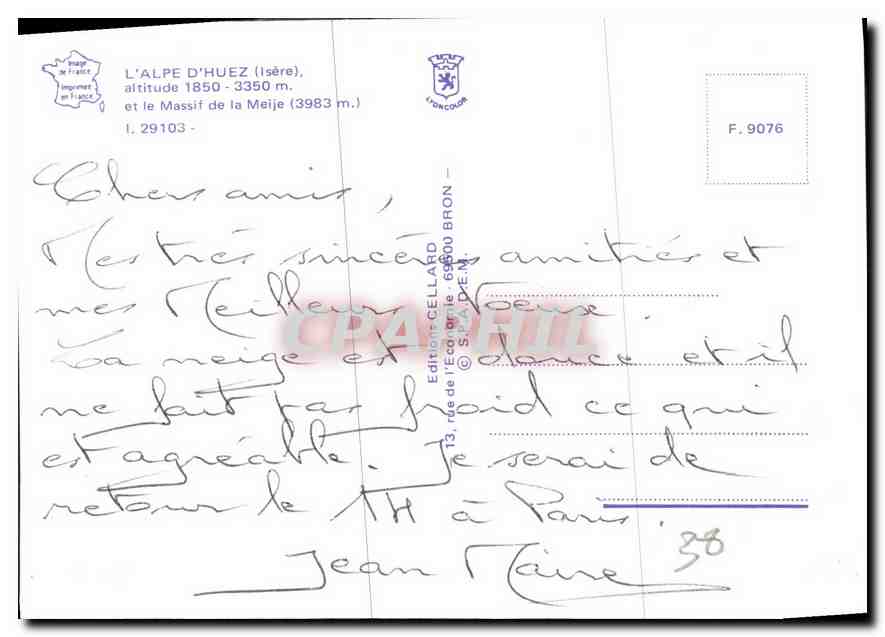 Image
de France
Imprimé
en France
L'ALPE D'HUEZ (Isère),
altitude 1850 - 3350 m.
et le Massif de la Meije (3983 m.)
I. 29103 -
LYONCOLOR
F. 9076
Editions CELLARD
13, rue de l'Economie - 69500 BRON —
© S.P.A.D.E.M.
CPAPHIL
Chers amis,
Mes très sincères amitiés et
mes Meilleurs Voeux.
La neige est douce et il
ne fait pas froid ce qui
est agréable. Je serai de
retour le 14 à Paris.
Jean Maire
38